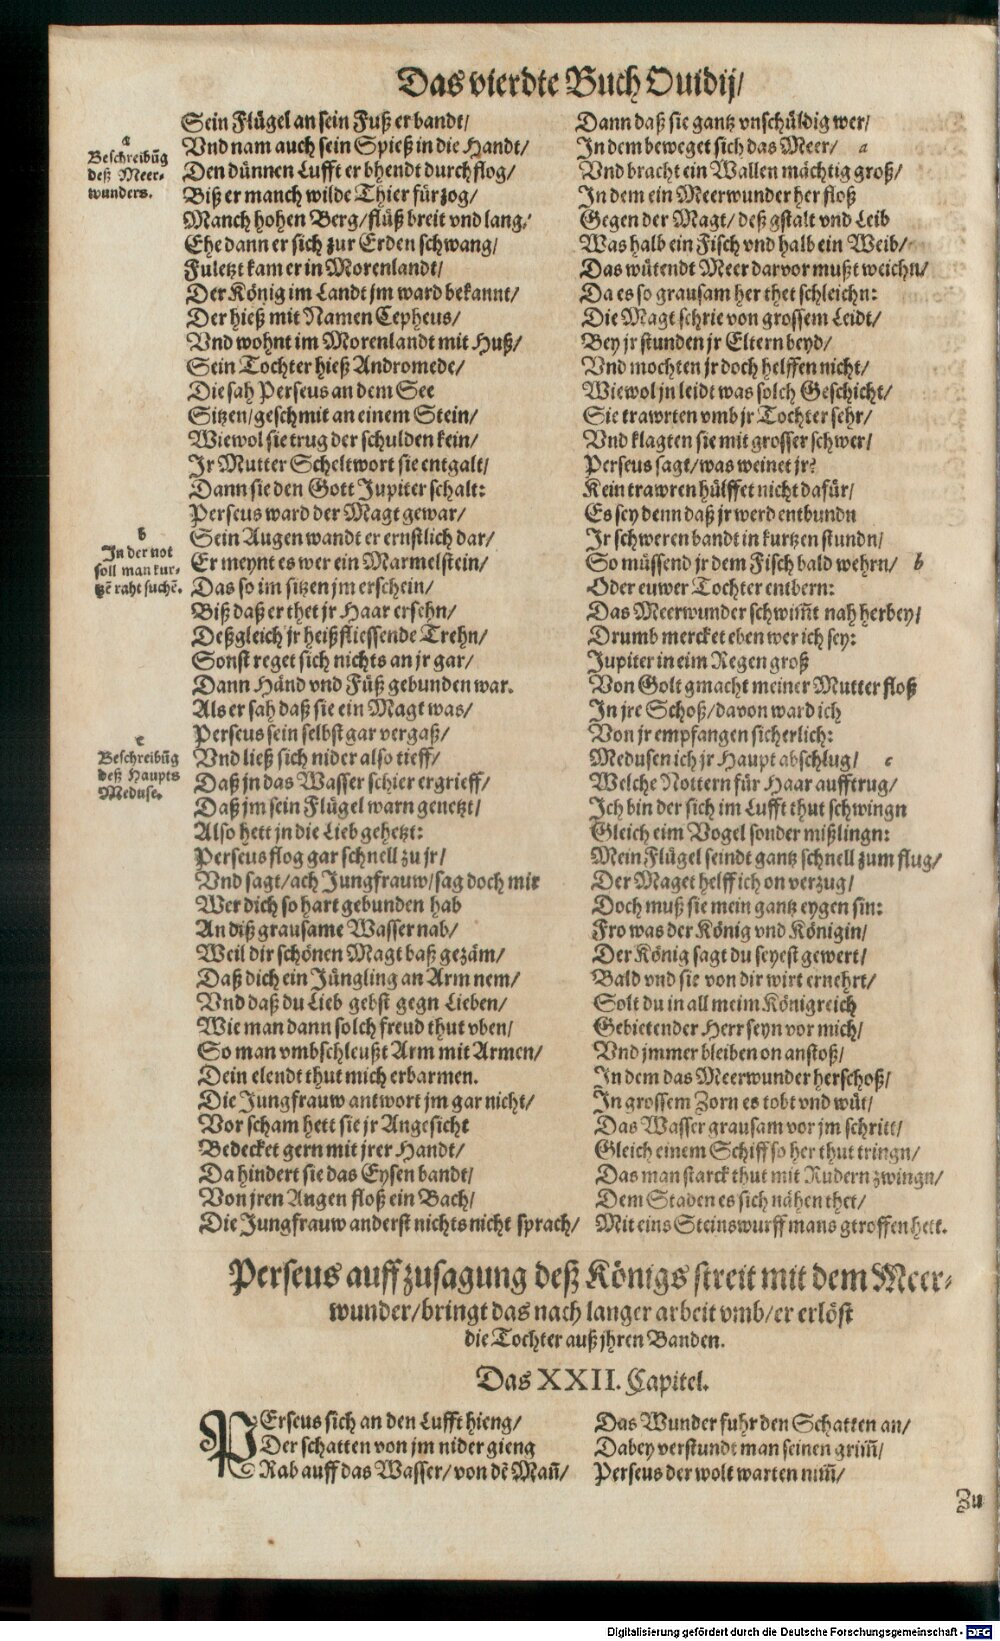 Das vierdte Buch Ouidij/
a
Beschreibūg
deß Meer-
wunders.
b
In der not
soll man kur-
tzē raht suchē.
c
Beschreibūg
deß Haupts
Meduse.
Sein Flügel an sein Fuß er bandt/
Vnd nam auch sein Spieß in die Handt/
Den dünnen Lufft er bhendt durchflog/
Biß er manch wilde Thier fürzog/
Manch hohen Berg/ flüß breit vnd lang/
Ehe dann er sich zur Erden schwang/
Zuletzt kam er in Morenlandt/
Der König im Landt jm ward bekannt/
Der hieß mit Namen Cepheus/
Vnd wohnt im Morenlandt mit Huß/
Sein Tochter hieß Andromede/
Die sah Perseus an dem See
Sitzen/ geschmit an einem Stein/
Wiewol sie trug der schulden kein/
Ir Mutter Scheltwort sie entgalt/
Dann sie den Gott Jupiter schalt:
Perseus ward der Magt gewar/
Sein Augen wandt er ernstlich dar/
Er meynt es wer ein Marmelstein/
Das so im sitzen jm erschein/
Biß daß er thet jr Haar ersehn/
Deßgleich jr heißfliessende Trehn/
Sonst reget sich nichts an jr gar/
Dann Händ vnd Füß gebunden war.
Als er sah daß sie ein Magt was/
Perseus sein selbst gar vergaß/
Vnd ließ sich nider also tieff/
Daß jn das Wasser schier ergrieff/
Daß jm sein Flügel warn genetzt/
Also hett jn die Lieb gehetzt:
Perseus flog gar schnell zu jr/
Vnd sagt/ ach Jungfrauw/ sag doch mir
Wer dich so hart gebunden hab
An diß grausame Wasser nab/
Weil dir schönen Magt baß gezäm/
Daß dich ein Jüngling an Arm nem/
Vnd daß du Lieb gebst gegn Lieben/
Wie man dann solch freud thut vben/
So man vmbschleußt Arm mit Armen/
Dein elendt thut mich erbarmen.
Die Jungfrauw antwort jm gar nicht/
Vor scham hett sie jr Angesicht
Bedecket gern mit jrer Handt/
Da hindert sie das Eysen bandt/
Von jren Augen floß ein Bach/
Die Jungfrauw anderst nichts nicht sprach/
Dann daß sie gantz vnschüldig wer/
In dem beweget sich das Meer/ a
Vnd bracht ein Wallen mächtig groß/
In dem ein Meerwunder her floß
Gegen der Magt/ deß gstalt vnd Leib
Was halb ein Fisch vnd halb ein Weib/
Das wütendt Meer darvor mußt weichn/
Da es so grausam her thet schleichn:
Die Magt schrie von grossem Leidt/
Bey jr stunden jr Eltern beyd/
Vnd mochten jr doch helffen nicht/
Wiewol jn leidt was solch Geschicht/
Sie trawrten vmb jr Tochter sehr/
Vnd klagten sie mit grosser schwer/
Perseus sagt/ was weinet jr?
Kein trawren hülffet nicht dafür/
Es sey denn daß jr werd entbundn
Ir schweren bandt in kurtzen stundn/
So müssend jr dem Fisch bald wehrn/ b
Oder euwer Tochter entbern:
Das Meerwunder schwim̄t nah herbey/
Drumb mercket eben wer ich sey:
Jupiter in eim Regen groß
Von Golt gmacht meiner Mutter floß
In jre Schoß/ davon ward ich
Von jr empfangen sicherlich:
Medusen ich jr Haupt abschlug/ c
Welche Nottern für Haar aufftrug/
Ich bin der sich im Lufft thut schwingn
Gleich eim Vogel sonder mißlingn:
Mein Flügel seindt gantz schnell zum flug/
Der Maget helff ich on verzug/
Doch muß sie mein gantz eygen sin:
Fro was der König vnd Königin/
Der König sagt du seyest gewert/
Bald vnd sie von dir wirt ernehrt/
Solt du in all meim Königreich
Gebietender Herr seyn vor mich/
Vnd jmmer bleiben on anstoß/
In dem das Meerwunder herschoß/
In grossem Zorn es tobt vnd wüt/
Das Wasser grausam vor jm schritt/
Gleich einem Schiff so her thut tringn/
Das man starck thut mit Rudern zwingn/
Dem Staden es sich nähen thet/
Mit eins Steinswurff mans gtroffen hett.
Perseus auff zusagung deß Königs streit mit dem Meer-
wunder/ bringt das nach langer arbeit vmb/ er erlöst
die Tochter auß jhren Banden.
Das XXII. Capitel.
PErseus sich an den Lufft hieng/
Der schatten von jm nider gieng
Rab auff das Wasser/ von dē Mañ/
Das Wunder fuhr den Schatten an/
Dabey verstundt man seinen grim̄/
Perseus der wolt warten nim̄/
Zu
Digitalisierung gefördert durch die Deutsche Forschungsgemeinschaft - DFG